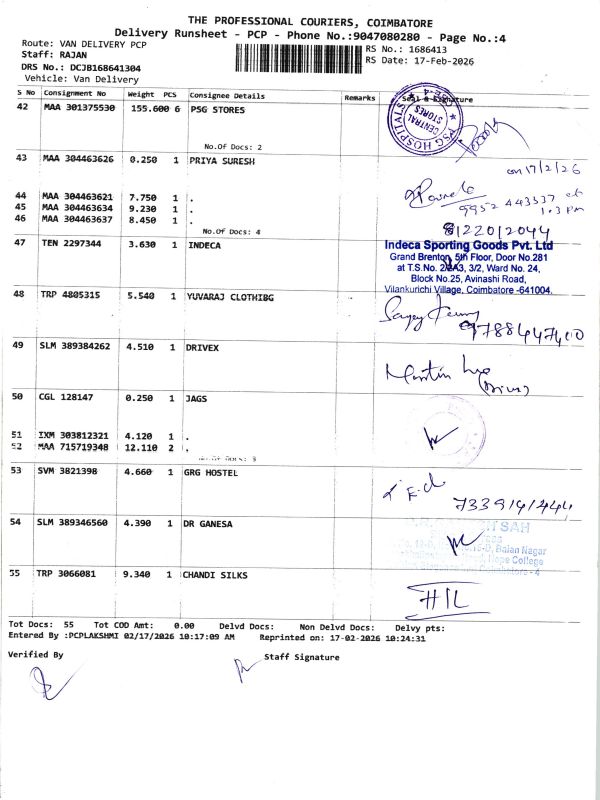 THE PROFESSIONAL COURIERS, COIMBATORE
Delivery Runsheet - PCP - Phone No.:9047080280 - Page No.:4
Route: VAN DELIVERY PCP
RS No.: 1686413
Staff: RAJAN
RS Date: 17-Feb-2026
DRS No.: DCJB168641304
Vehicle: Van Delivery
S No Consignment No Weight PCS Consignee Details Remarks Seal & Signature
42 MAA 301375530 155.600 6 PSG STORES
PSG HOSPITALS
CENTRAL STORES
No.Of Docs: 2
43 MAA 304463626 0.250 1 PRIYA SURESH
on 17/2/26
44 MAA 304463621 7.750 1 .
45 MAA 304463634 9.230 1 .
9952 443337 at
46 MAA 304463637 8.450 1 .
1.3 PM
No.Of Docs: 4
8122012044
47 TEN 2297344 3.630 1 INDECA
Indeca Sporting Goods Pvt. Ltd
Grand Brenton, 5th Floor, Door No.281
at T.S.No. 2/2A3, 3/2, Ward No. 24,
Block No.25, Avinashi Road,
Vilankurichi Village, Coimbatore -641004.
48 TRP 4805315 5.540 1 YUVARAJ CLOTHIBG
9788447400
49 SLM 389384262 4.510 1 DRIVEX
50 CGL 128147 0.250 1 JAGS
51 IXM 303812321 4.120 1 .
52 MAA 715719348 12.110 2 .
No.Of Docs: 3
53 SVM 3821398 4.660 1 GRG HOSTEL
54 SLM 389346560 4.390 1 DR GANESA
SAH
Balan Nagar
Hope College
55 TRP 3066081 9.340 1 CHANDI SILKS
Tot Docs: 55 Tot COD Amt: 0.00 Delvd Docs: Non Delvd Docs: Delvy pts:
Entered By :PCPLAKSHMI 02/17/2026 10:17:09 AM Reprinted on: 17-02-2026 10:24:31
Verified By
Staff Signature